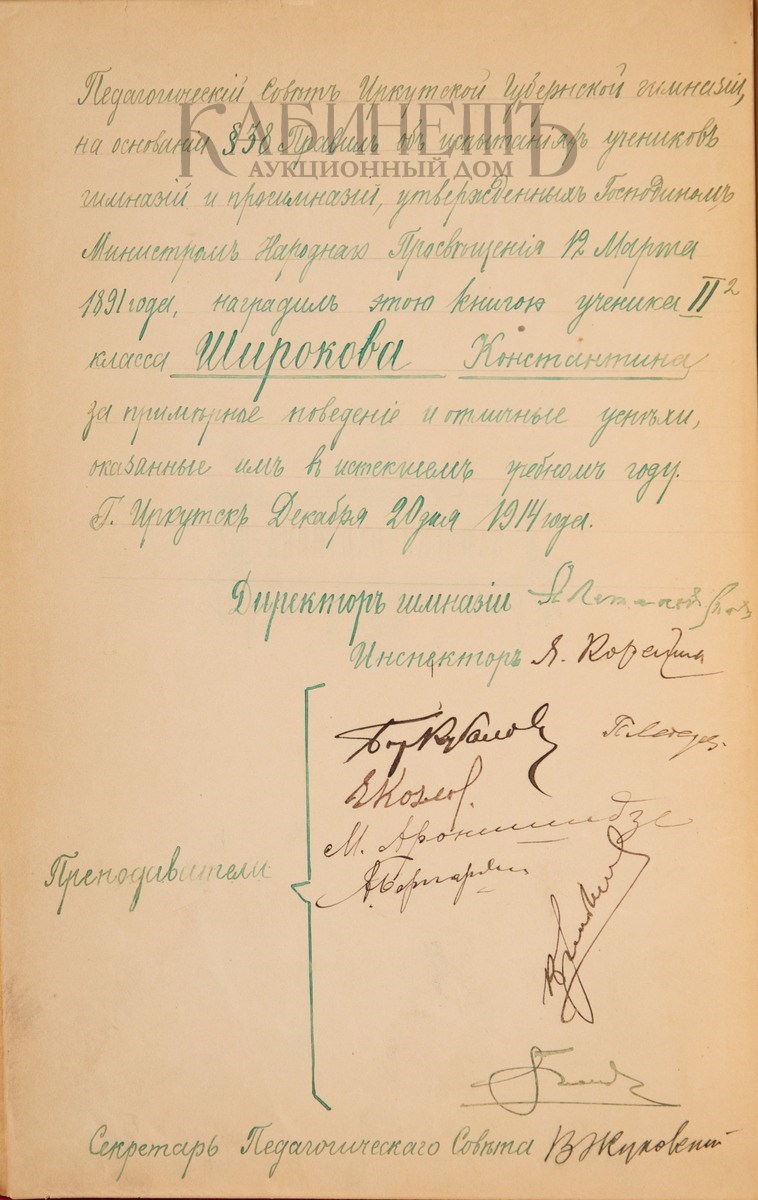 Педагогическій Совѣтъ Иркутской Губернской гимназіи,
КАБИНЕТЪ
на основаніи § 38 Правилъ объ испытаніяхъ учениковъ
АУКЦИОННЫЙ ДОМ
гимназій и прогимназій, утвержденныхъ Господиномъ
Министромъ Народнаго Просвѣщенія 12 Марта
1891 года, наградилъ этою книгою ученика II²
класса Широкова Константина
за примѣрное поведеніе и отличные успѣхи,
оказанные имъ въ истекшемъ учебномъ году.
Г. Иркутскъ Декабря 20 дня 1914 года.
Директоръ гимназіи
Инспекторъ Я. Корейша
Козлов.
М. Аронишидзе
Преподаватели:
Секретарь Педагогическаго Совѣта В Жуковскій